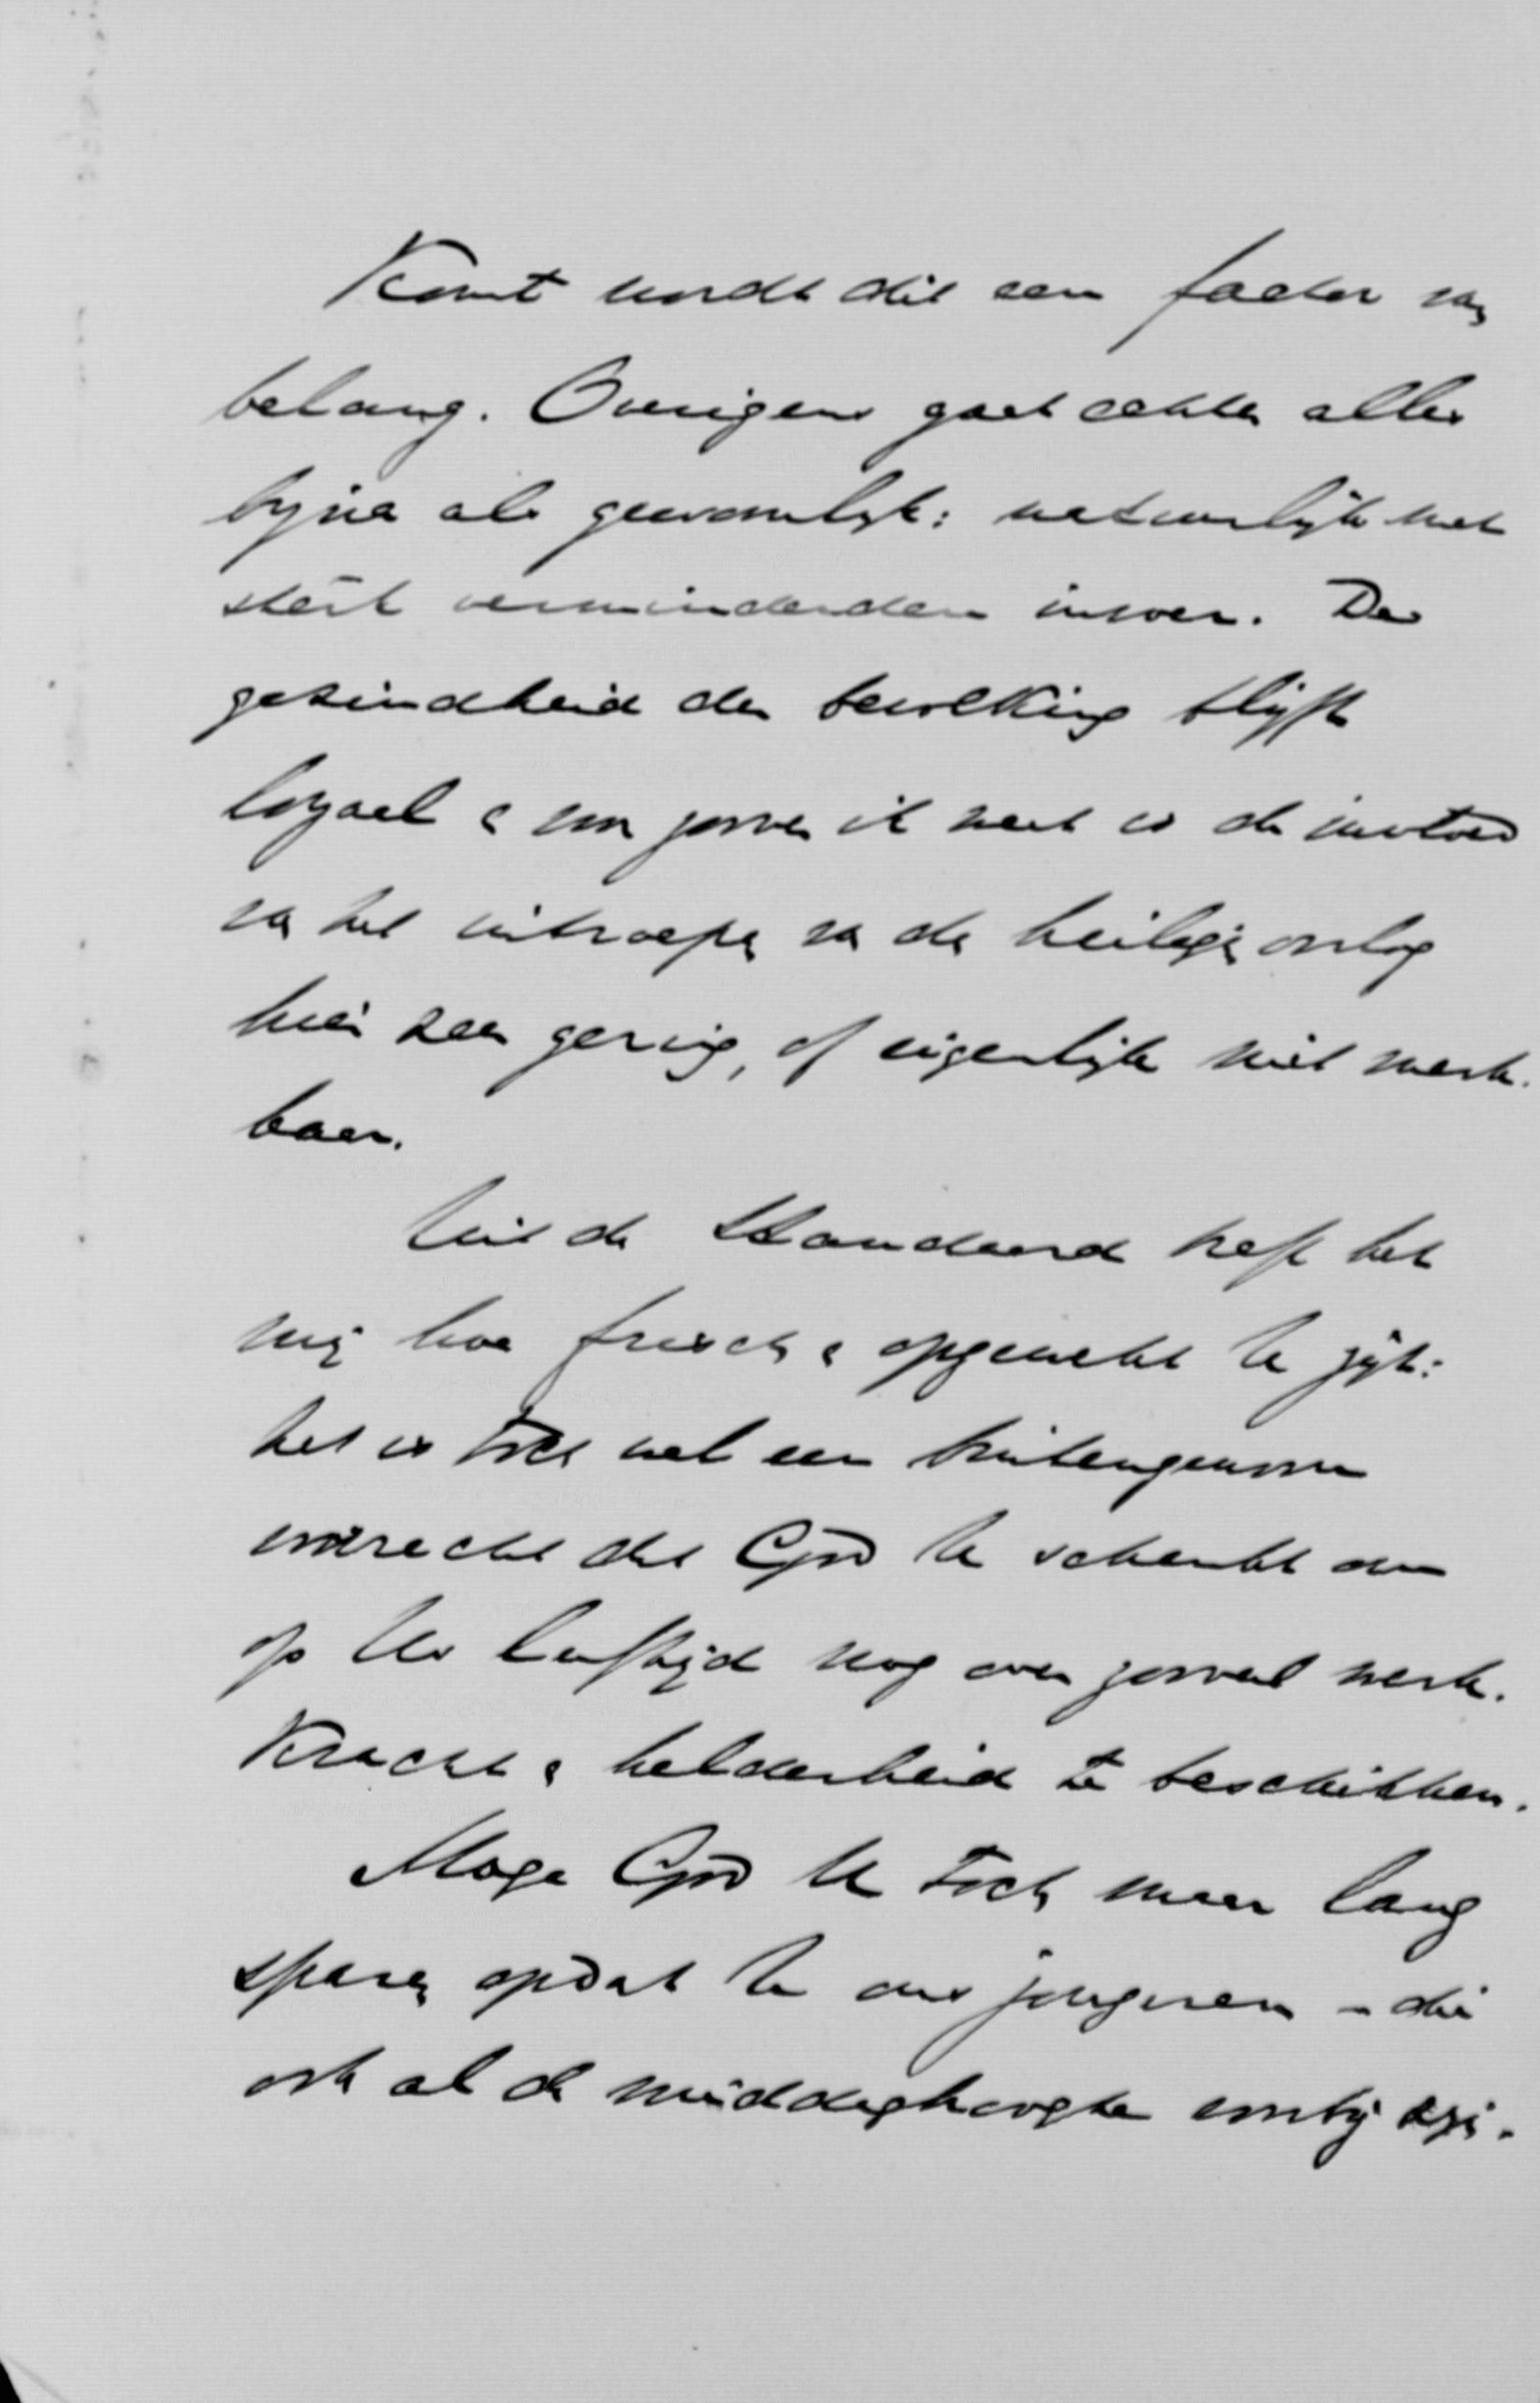 Komt wordt dit een factor van
belang. Overigens gaat echter alles
bijna als gewoonlijk: natuurlijk met
sterk verminderden invoer. De
gezindheid der bevolking blijft
loyaal & voor zoover ik weet is de invloed
van het uitroepen van den heiligen oorlog
hier zeer gering, of eigenlijk niet merk-
baar.
Uit de Standaard treft het
mij hoe frisch & opgewekt U zijt:
het is toch wel een buitengewoon
voorrecht dat God U schenkt om
op Uw leeftijd nog over zooveel werk-
kracht & helderheid te beschikken.
Moge God U toch maar lang
sparen opdat U ons jongeren – die
ook al de middaghoogte voorbij zijn –